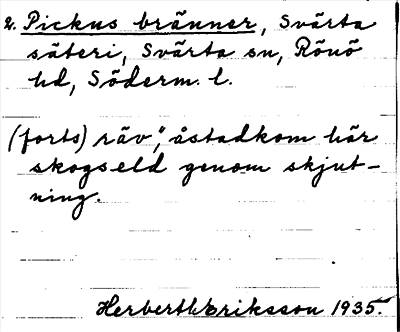 2. Pickus bränner, Svärta
säteri, Svärta sn, Rönö
hd, Söderm. l.
(forts) räv," åstadkom här
skogseld genom skjut-
ning.
Herbert Eriksson 1935.